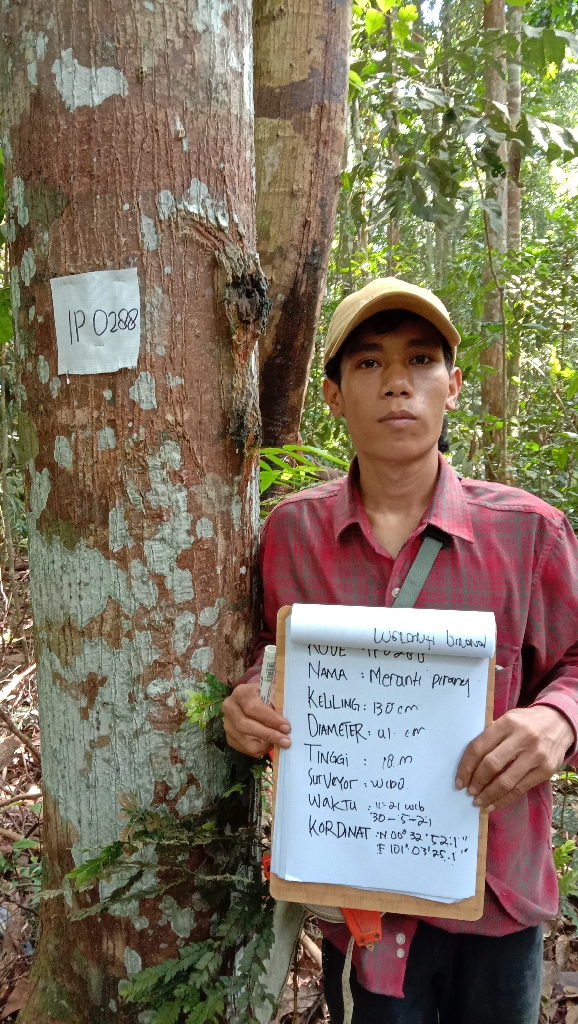 IP 0288
KODE : IP0288
NAMA : Meranti Pirang
KELILING : 130 cm
DIAMETER : 41 cm
TINGGI : 18 M
SURVEYOR : WIBO
WAKTU : 11:21 WIB
30-5-21
KORDINAT : N 00° 32' 52.1"
E 101° 03' 25.1"